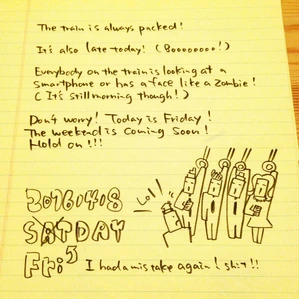 The train is always packed!
It's also late today! (Boooooooo!)
Everybody on the train is looking at a
smartphone or has a face like a zombie!
(It's still morning though!)
Don't worry! Today is Friday!
The weekend is coming soon!
Hold on!!!
Lol!
2016.4.8
SATDAY
Fri
I had a mistake again! shit!!